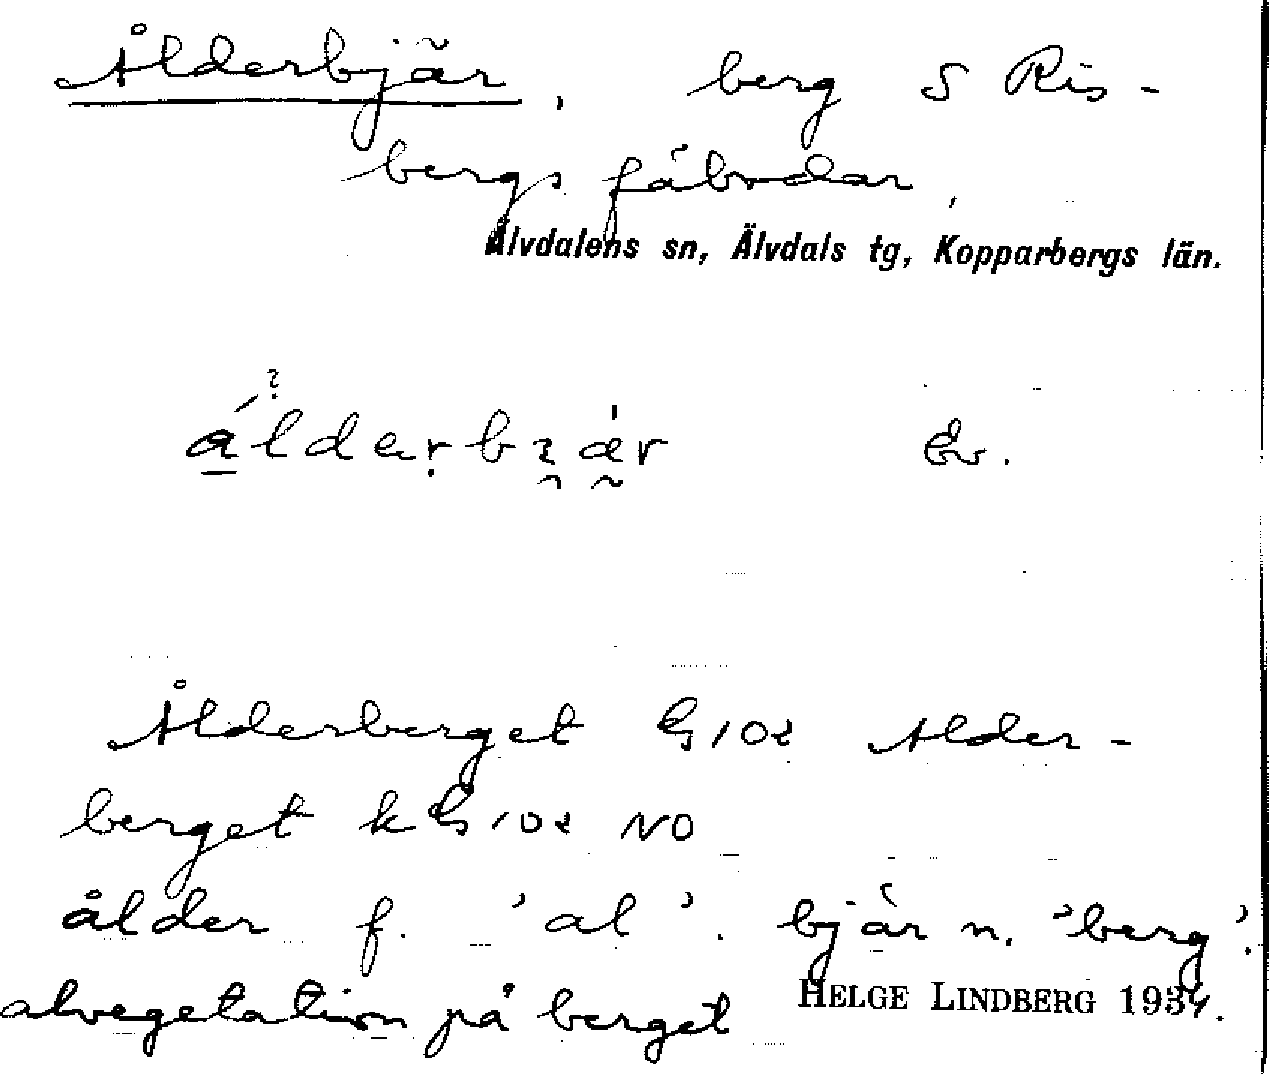 Ålderbjär, berg S Ris-
bergs fäbodar,
Älvdalens sn, Älvdals tg, Kopparbergs län.
Ev.
Ålderberget G102 Alder-
berget kG102 NO
ålder f. 'al'. bjär n. 'berg'.
alvegetation på berget
HELGE LINDBERG 1934.